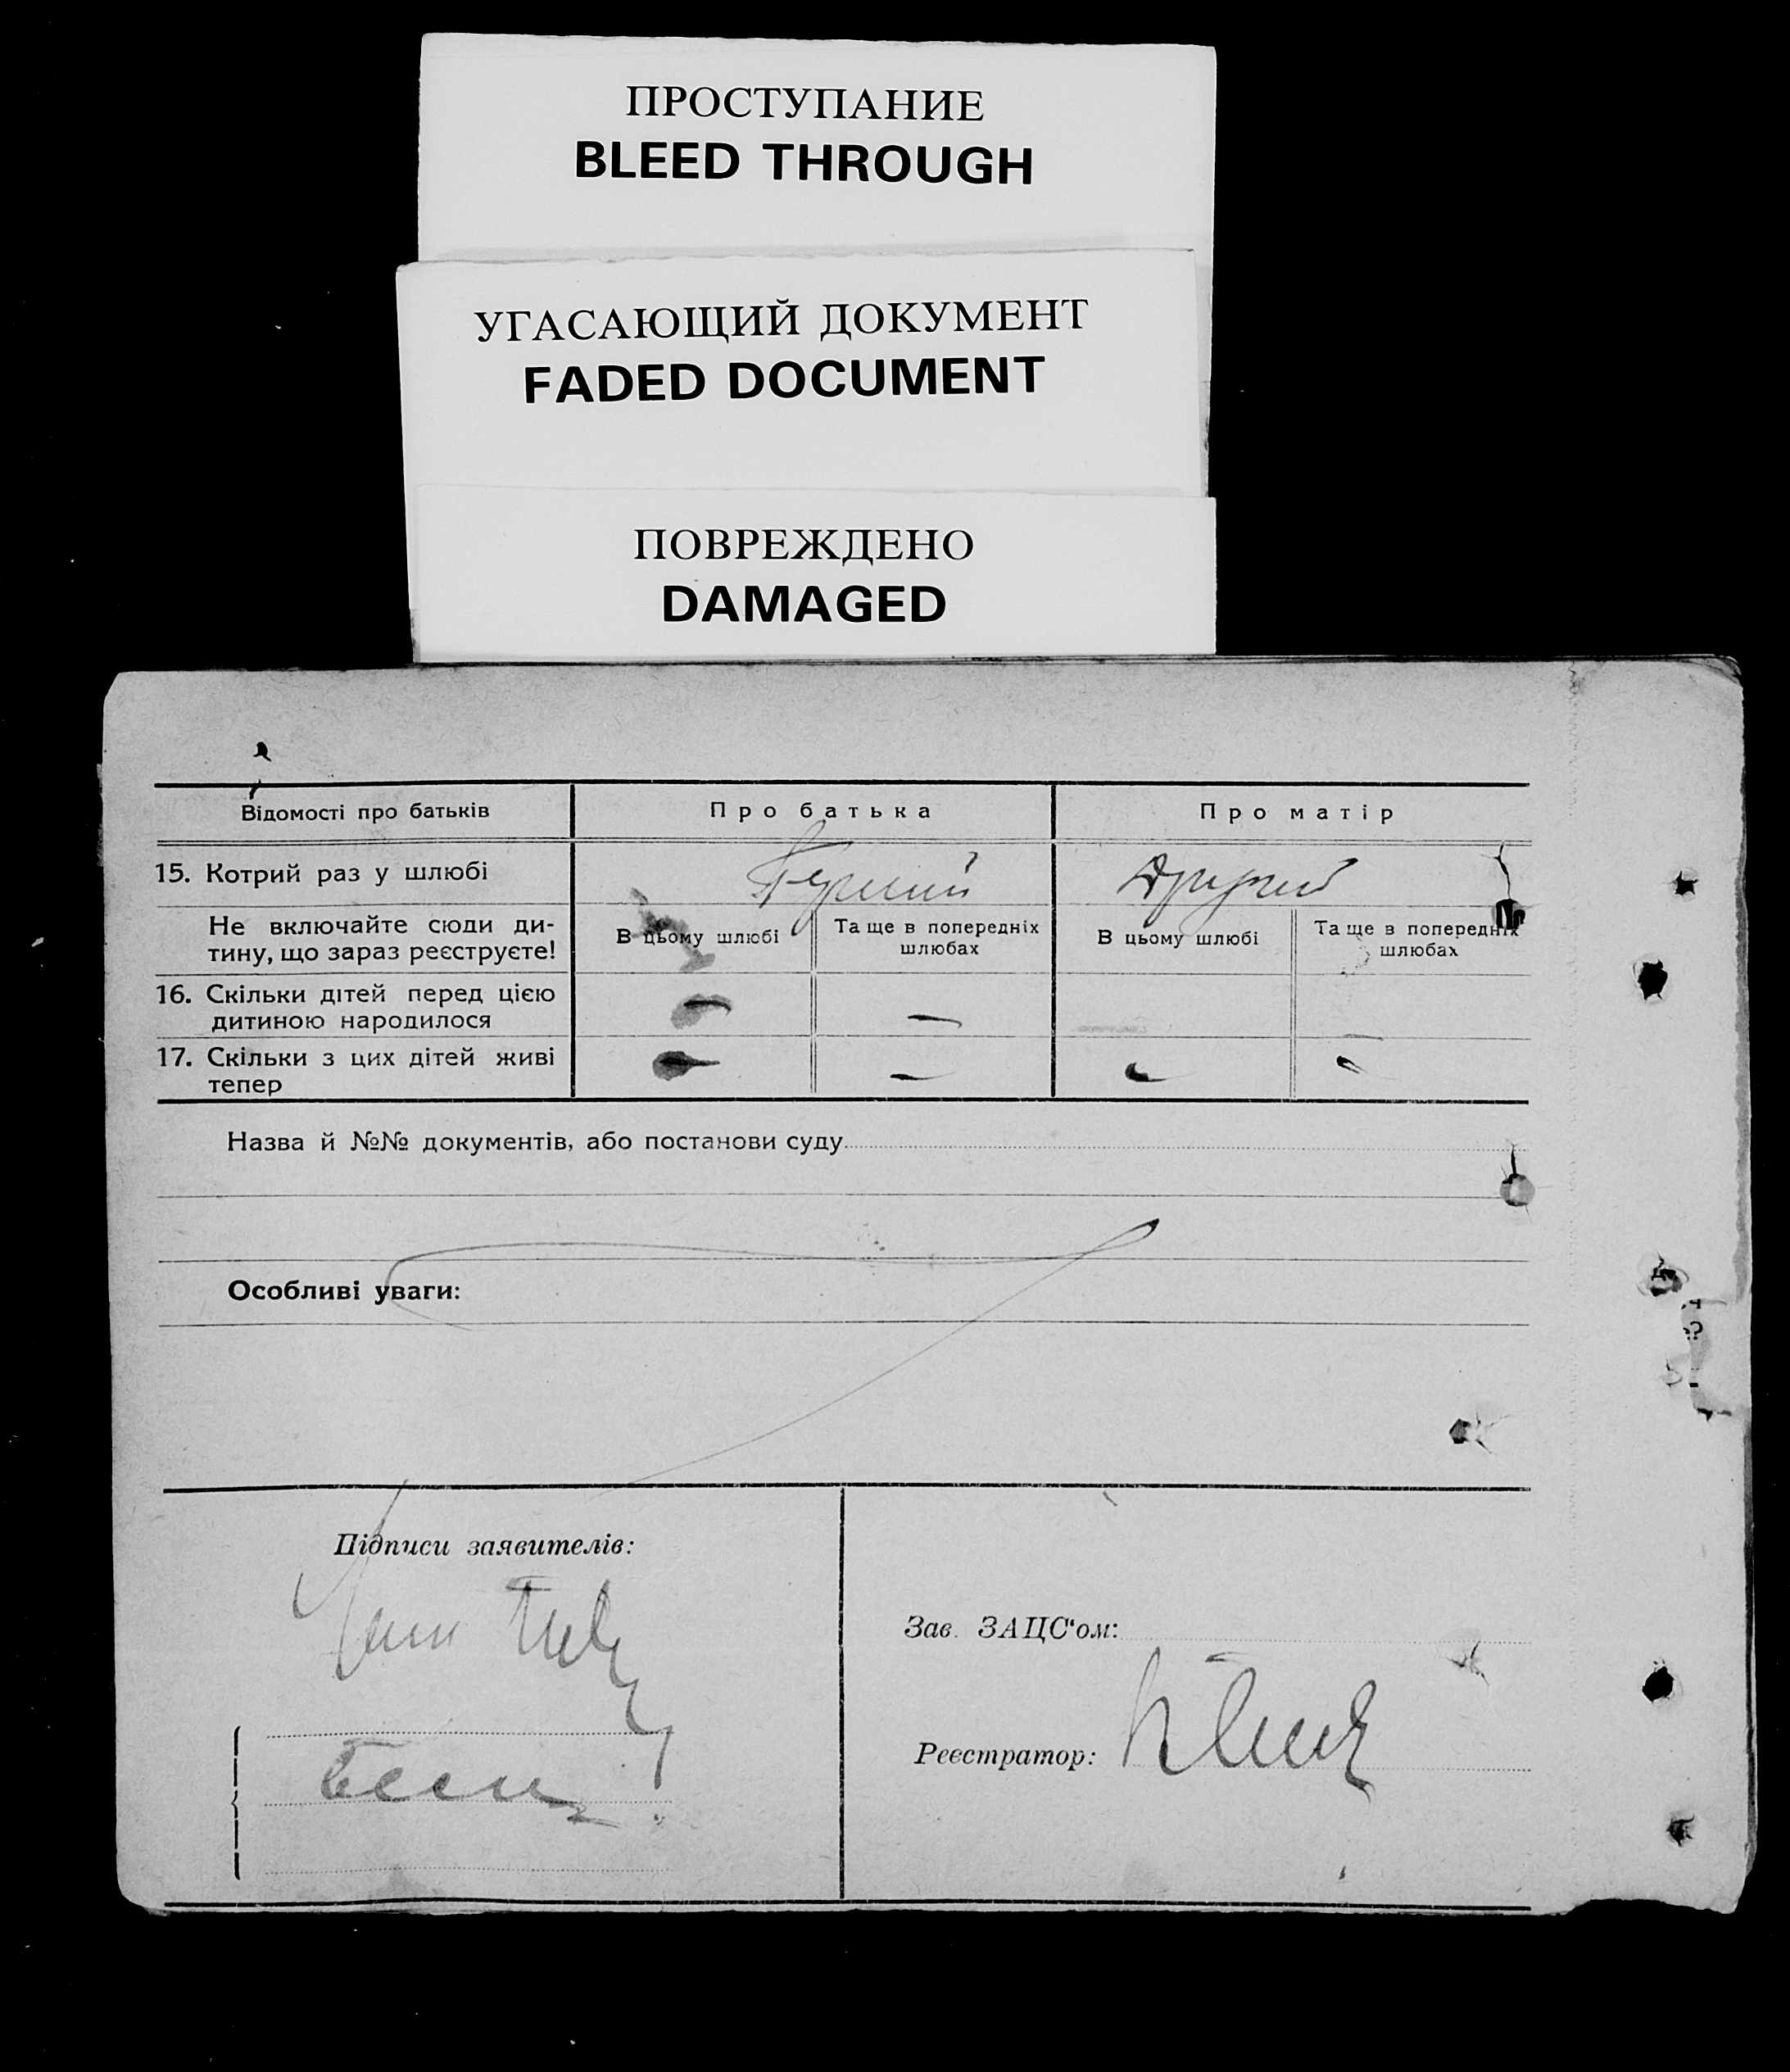 ПРОСТУПАНИЕ
BLEED THROUGH
УГАСАЮЩИЙ ДОКУМЕНТ
FADED DOCUMENT
ПОВРЕЖДЕНО
DAMAGED
Відомості про батьків Про батька Про матір
15. Котрий раз у шлюбі Другий
Не включайте сюди ди-
тину, що зараз реєструєте!
В цьому шлюбі
Та ще в попередніх
шлюбах
В цьому шлюбі
Та ще в попередніх
шлюбах
16. Скільки дітей перед цією
дитиною народилося — —
17. Скільки з цих дітей живі
тепер — — — —
Назва й №№ документів, або постанови суду
Особливі уваги:
Підписи заявителів:
Зав. ЗАЦС‘ом:
Реєстратор: